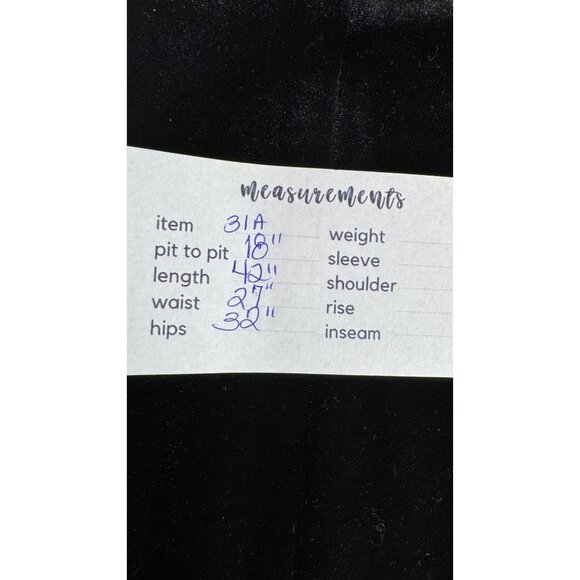 measurements
item 31A
pit to pit 18"
length 42"
waist 27"
hips 32"
weight
sleeve
shoulder
rise
inseam